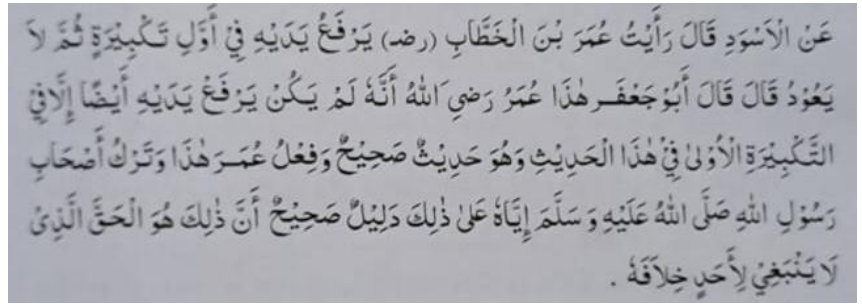 عَنْ الْاَسْوَدِ قَالَ رَأَيْتُ عُمَرَ بْنَ الْخَطَّابِ (رضـ) يَرْفَعُ يَدَيْهِ فِيْ أَوَّلِ تَكْبِيْرَةٍ ثُمَّ لَا
يَعُوْدُ قَالَ قَالَ أَبُوْ جَعْفَـر هٰذَا عُمَرُ رَضِىَ اللهُ أَنَّهٗ لَمْ يَكُنْ يَرْفَعْ يَدَيْهِ أَيْضًا إِلَّافِيْ
التَّكْبِيْرَةِ الْأُوْلىٰ فِيْ هٰذَا الْحَدِيْثِ وَهُوَ حَدِيْثٌ صَحِيْحٌ وَفِعْلُ عُمَـرَ هٰذَا وَتَرْكُ أَصْحَابِ
رَسُوْلِ اللهِ صَلَّى اللهُ عَلَيْهِ وَ سَلَّمَ إِيَّاهُ عَلىٰ ذٰلِكَ دَلِيْلٌ صَحِيْحٌ أَنَّ ذٰلِكَ هُوَ الْحَقَّ الَّذِىْ
لَا يَنْبَغِيْ لِأَحَدٍ خِلَافَهٗ .